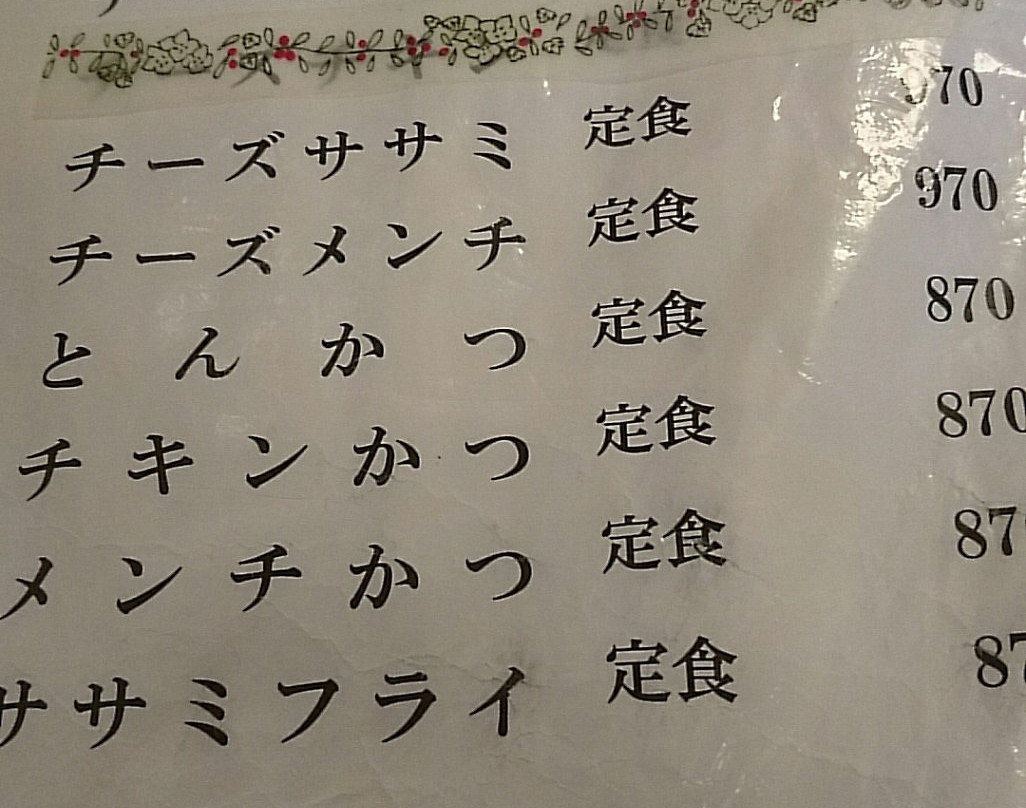 チーズササミ 定食 970
チーズメンチ 定食 970
とんかつ 定食 870
チキンかつ 定食 870
メンチかつ 定食 87
ササミフライ 定食 87